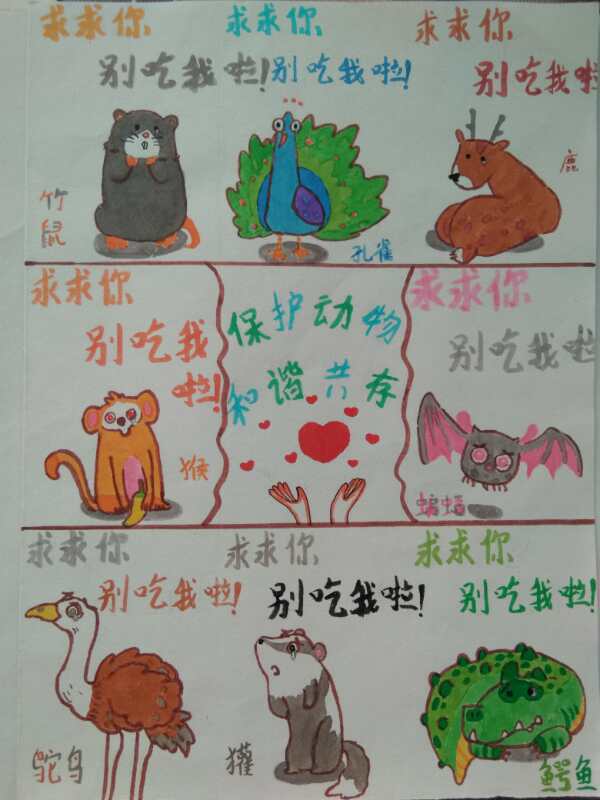 求求你
别吃我啦!
竹鼠
求求你
别吃我啦!
孔雀
求求你
别吃我啦
鹿
求求你
别吃我
啦!
猴
保护动物
和谐共存
求求你
别吃我啦
蝙蝠
求求你
别吃我啦!
鸵鸟
求求你
别吃我啦!
獾
求求你
别吃我啦!
鳄鱼